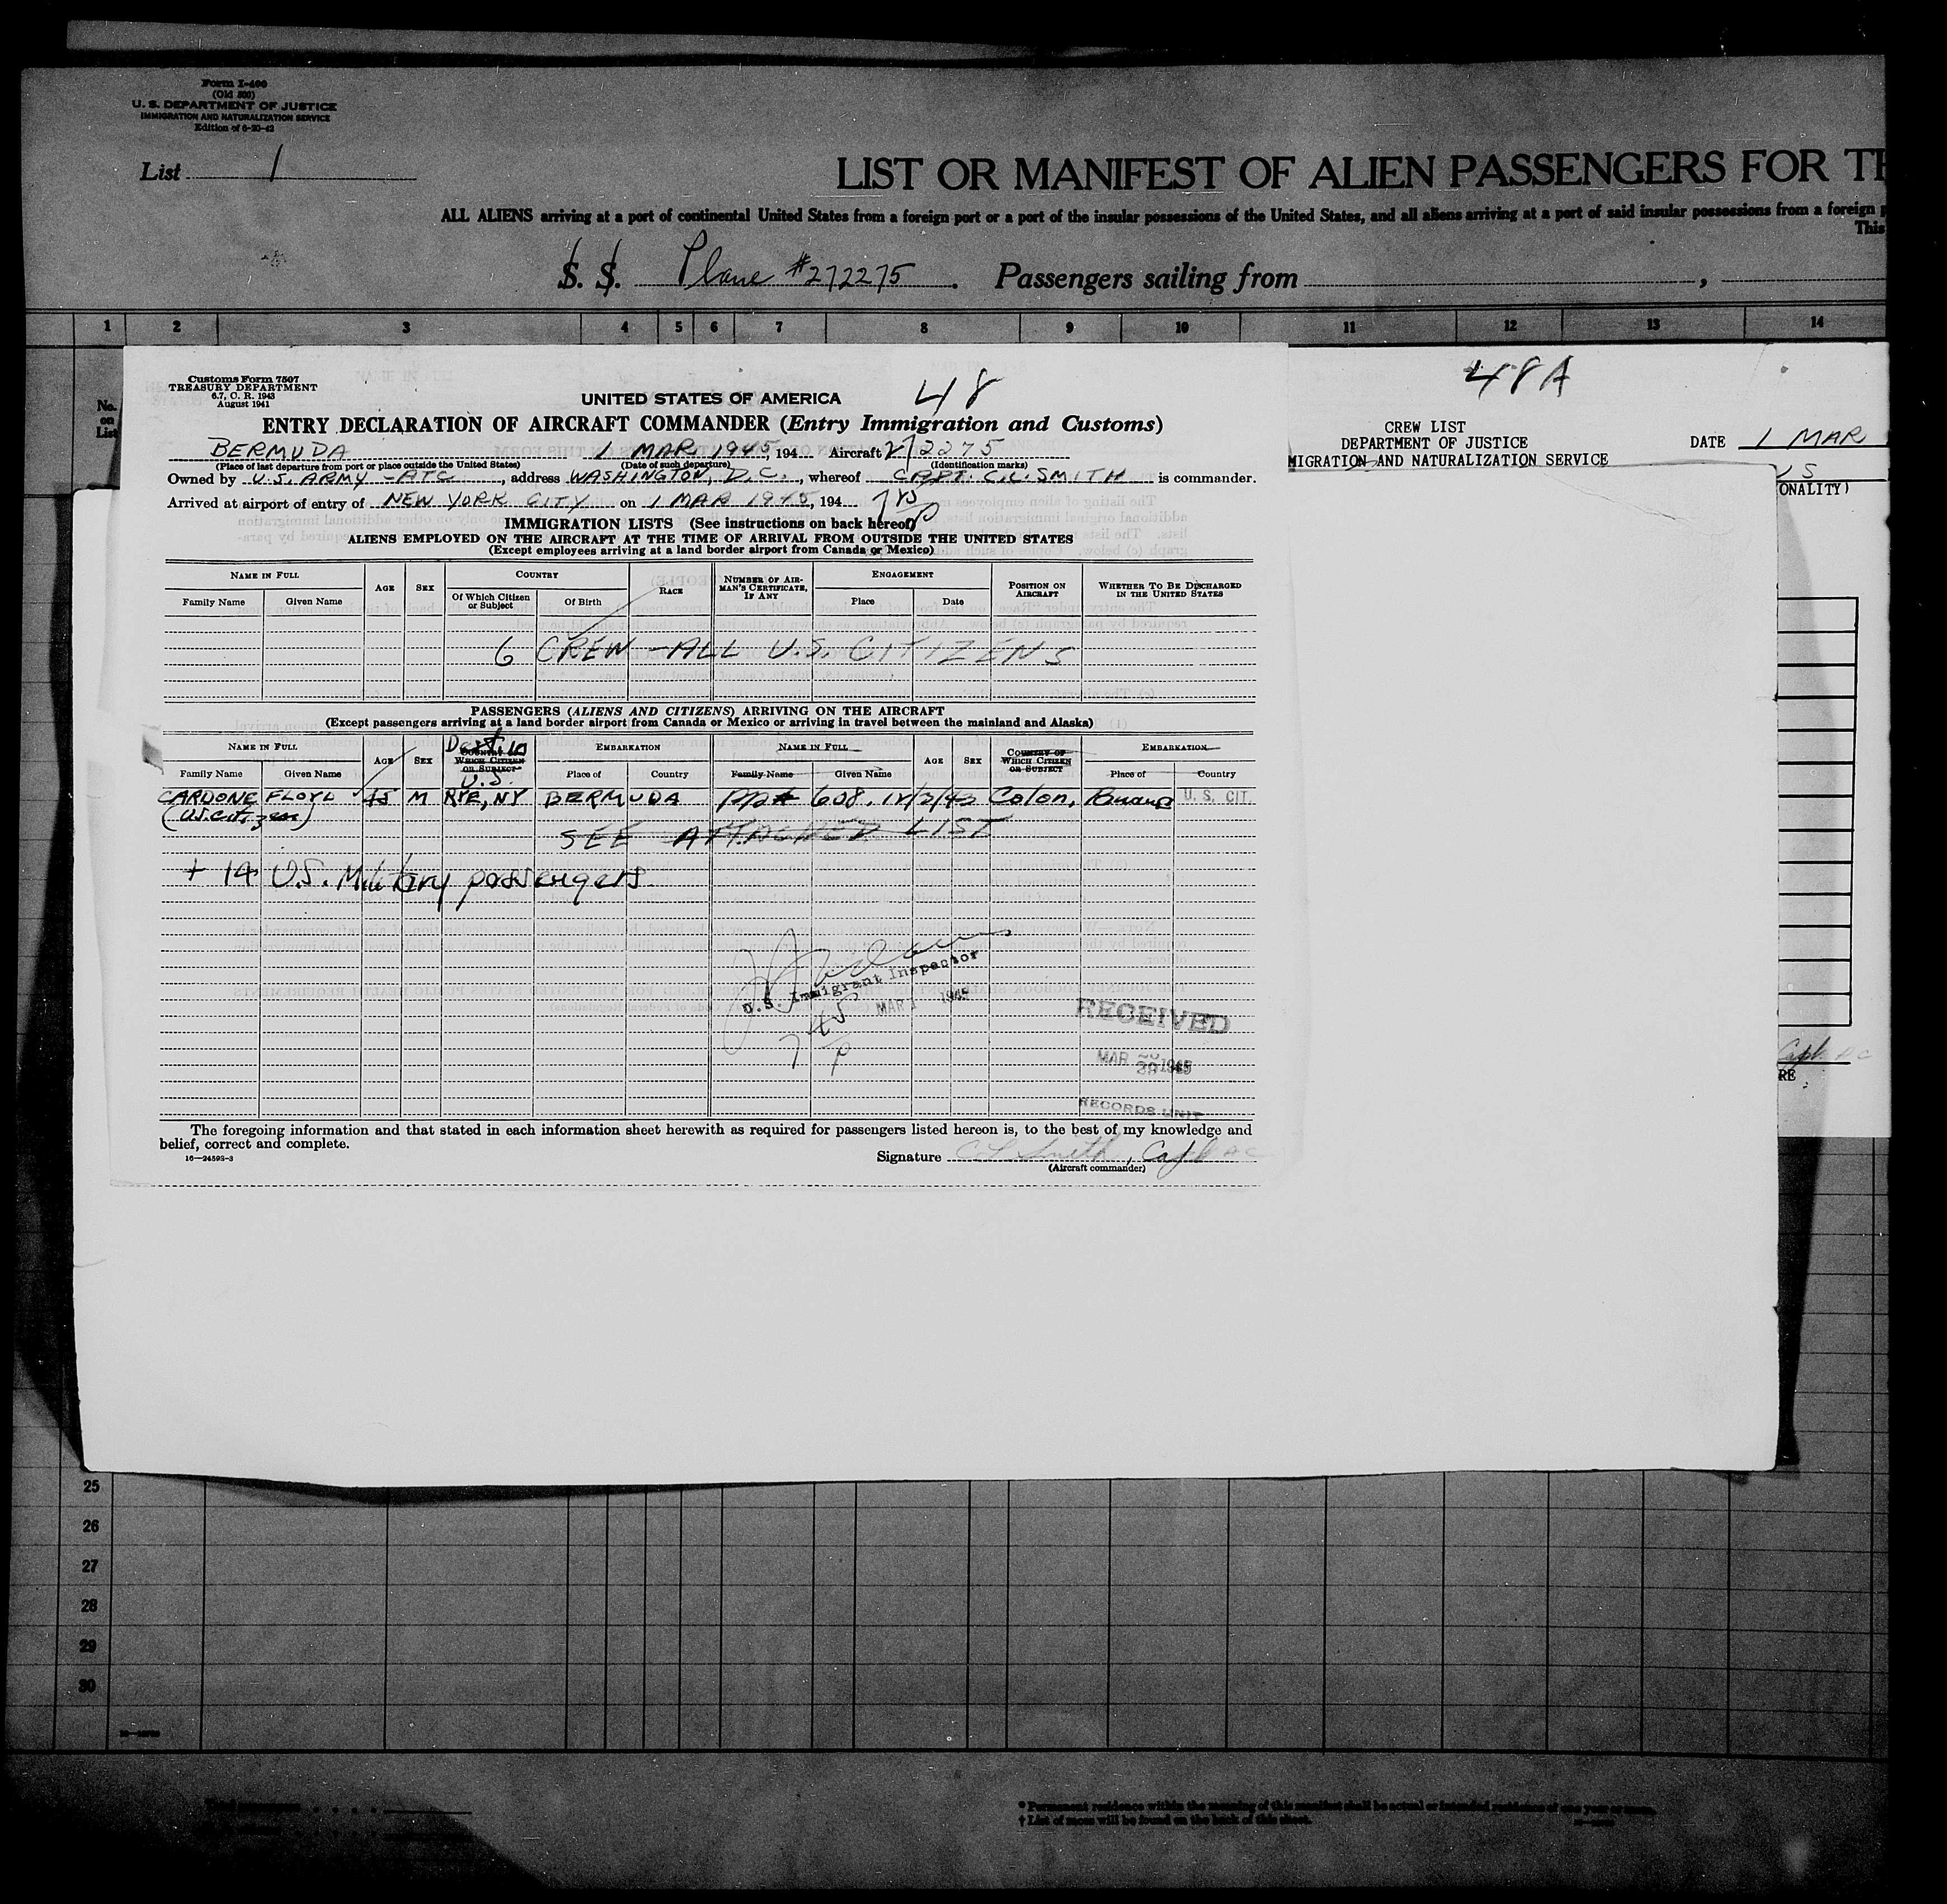 Form I-400
(Old 500)
U. S. DEPARTMENT OF JUSTICE
IMMIGRATION AND NATURALIZATION SERVICE
Edition of 6-20-42
List 1
LIST OR MANIFEST OF ALIEN PASSENGERS FOR TH
ALL ALIENS arriving at a port of continental United States from a foreign port or a port of the insular possessions of the United States, and all aliens arriving at a port of said insular possessions from a foreign
This
S. S. Plane #272275. Passengers sailing from ,
1 2 3 4 5 6 7 8 9 10 11 12 13 14
No. on List
Customs Form 7507
TREASURY DEPARTMENT
6.7, C. R. 1943
August 1941
48
UNITED STATES OF AMERICA
ENTRY DECLARATION OF AIRCRAFT COMMANDER (Entry Immigration and Customs)
BERMUDA 1 MAR 1945, 194 Aircraft 272275
(Place of last departure from port or place outside the United States) (Date of such departure) (Identification marks)
Owned by U.S. ARMY - ATC, address WASHINGTON, D.C., whereof CAPT. C.L. SMITH is commander.
Arrived at airport of entry of NEW YORK CITY on 1 MAR 1945, 194
IMMIGRATION LISTS (See instructions on back hereof)
ALIENS EMPLOYED ON THE AIRCRAFT AT THE TIME OF ARRIVAL FROM OUTSIDE THE UNITED STATES
(Except employees arriving at a land border airport from Canada or Mexico)
NAME IN FULL AGE SEX COUNTRY RACE NUMBER OF AIRMAN'S CERTIFICATE, IF ANY ENGAGEMENT POSITION ON AIRCRAFT WHETHER TO BE DISCHARGED IN THE UNITED STATES
Family Name Given Name Of Which Citizen or Subject Of Birth Place Date
6 CREW - ALL U.S. CITIZENS
PASSENGERS (ALIENS AND CITIZENS) ARRIVING ON THE AIRCRAFT
(Except passengers arriving at a land border airport from Canada or Mexico or arriving in travel between the mainland and Alaska)
NAME IN FULL AGE SEX COUNTRY OF WHICH CITIZEN OR SUBJECT EMBARKATION NAME IN FULL AGE SEX COUNTRY OF WHICH CITIZEN OR SUBJECT EMBARKATION
Family Name Given Name U.S Place of Country Family Name Given Name Place of Country
CARDONE FLOYD 45 M RYE, NY BERMUDA 608. 12/2/43 Colon, U. S. CIT.
(U.S. citizen)
SEE ATTACHED LIST
+ 14 U.S. Military passengers
U.S. Immigrant Inspector
MAR 1 1945
7 45 P
RECEIVED
MAR 20 1945
RECORDS UNIT
The foregoing information and that stated in each information sheet herewith as required for passengers listed hereon is, to the best of my knowledge and
belief, correct and complete.
16—24593-3
Signature C L Smith, Capt AC
(Aircraft commander)
48A
CREW LIST
DEPARTMENT OF JUSTICE
MIGRATION AND NATURALIZATION SERVICE
DATE 1 MAR
US
ONALITY)
Capt. AC
RE
25
26
27
28
29
30
* Permanent residence within the meaning of this manifest shall be actual or intended residence of one year or more.
† List of races will be found on the back of this sheet.